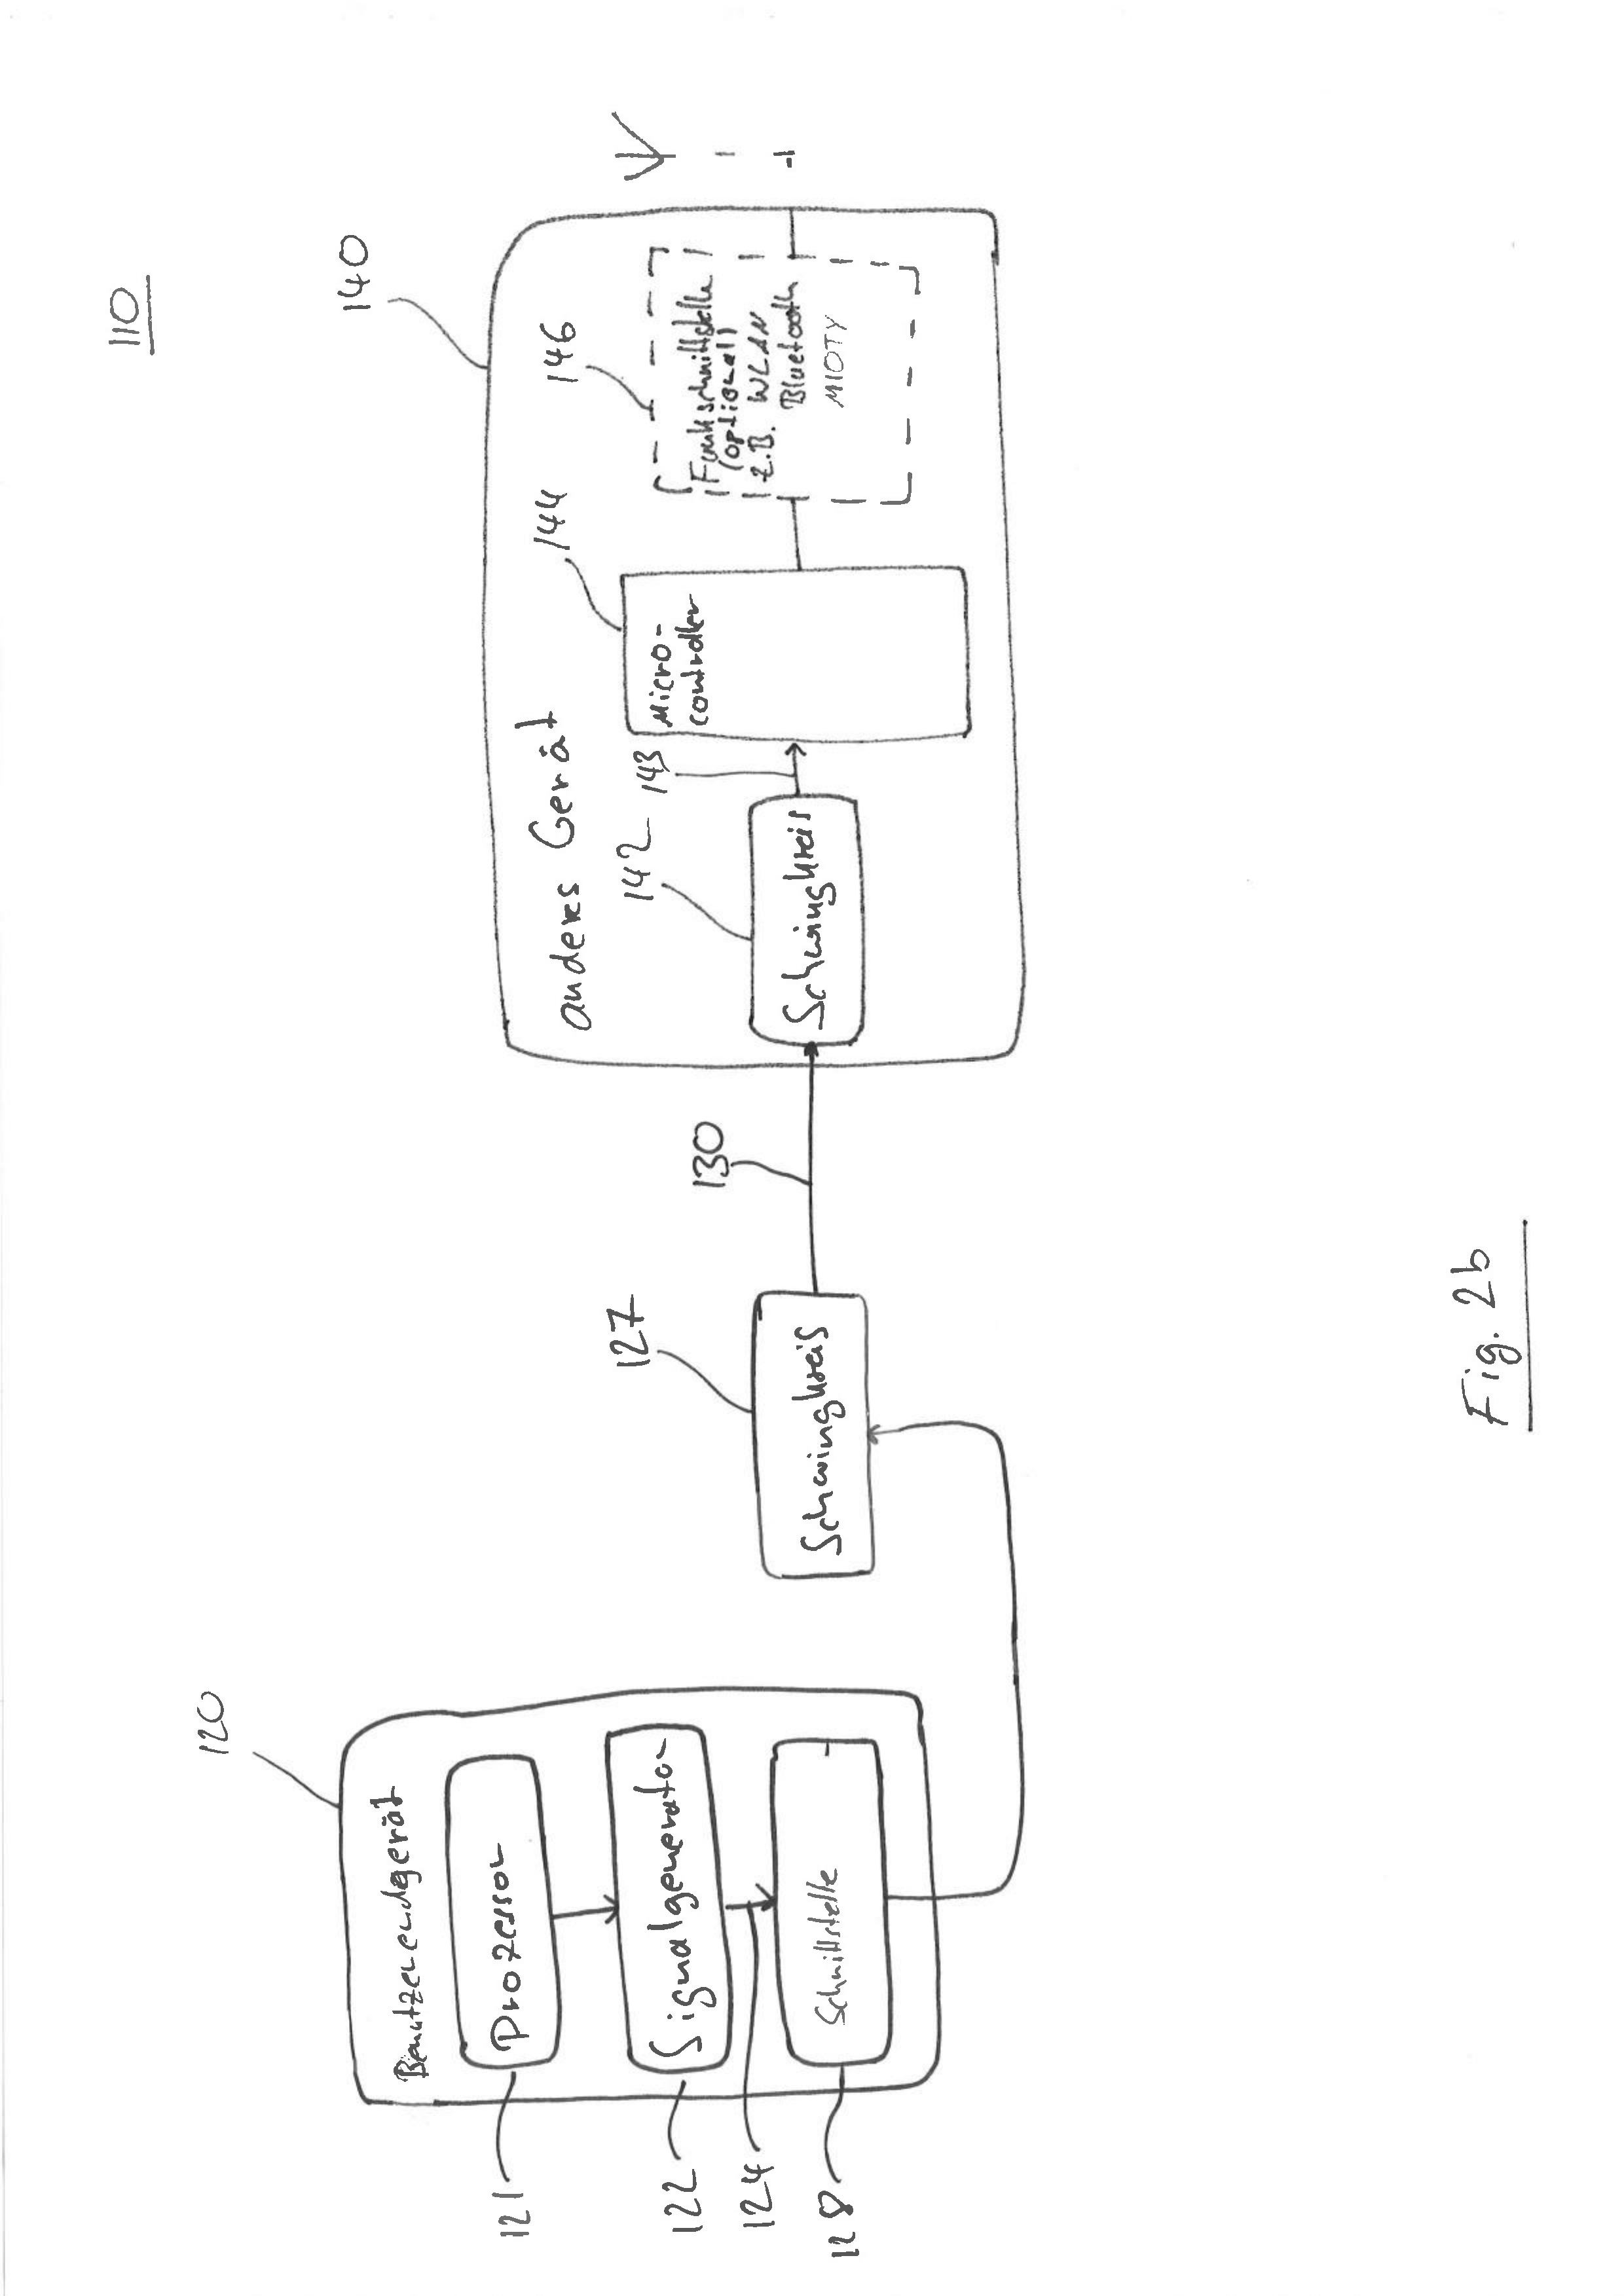 110
120
Benutzerendgerät
Prozessor
121
Signalgenerator
122
124
Schnittstelle
128
127
Schwingkreis
130
140
anderes Gerät
142
Schwingkreis
143
144
Micro-
controller
146
Funkschnittstelle
(optional)
z.B. WLAN
Bluetooth
MIOTY
Fig. 2b